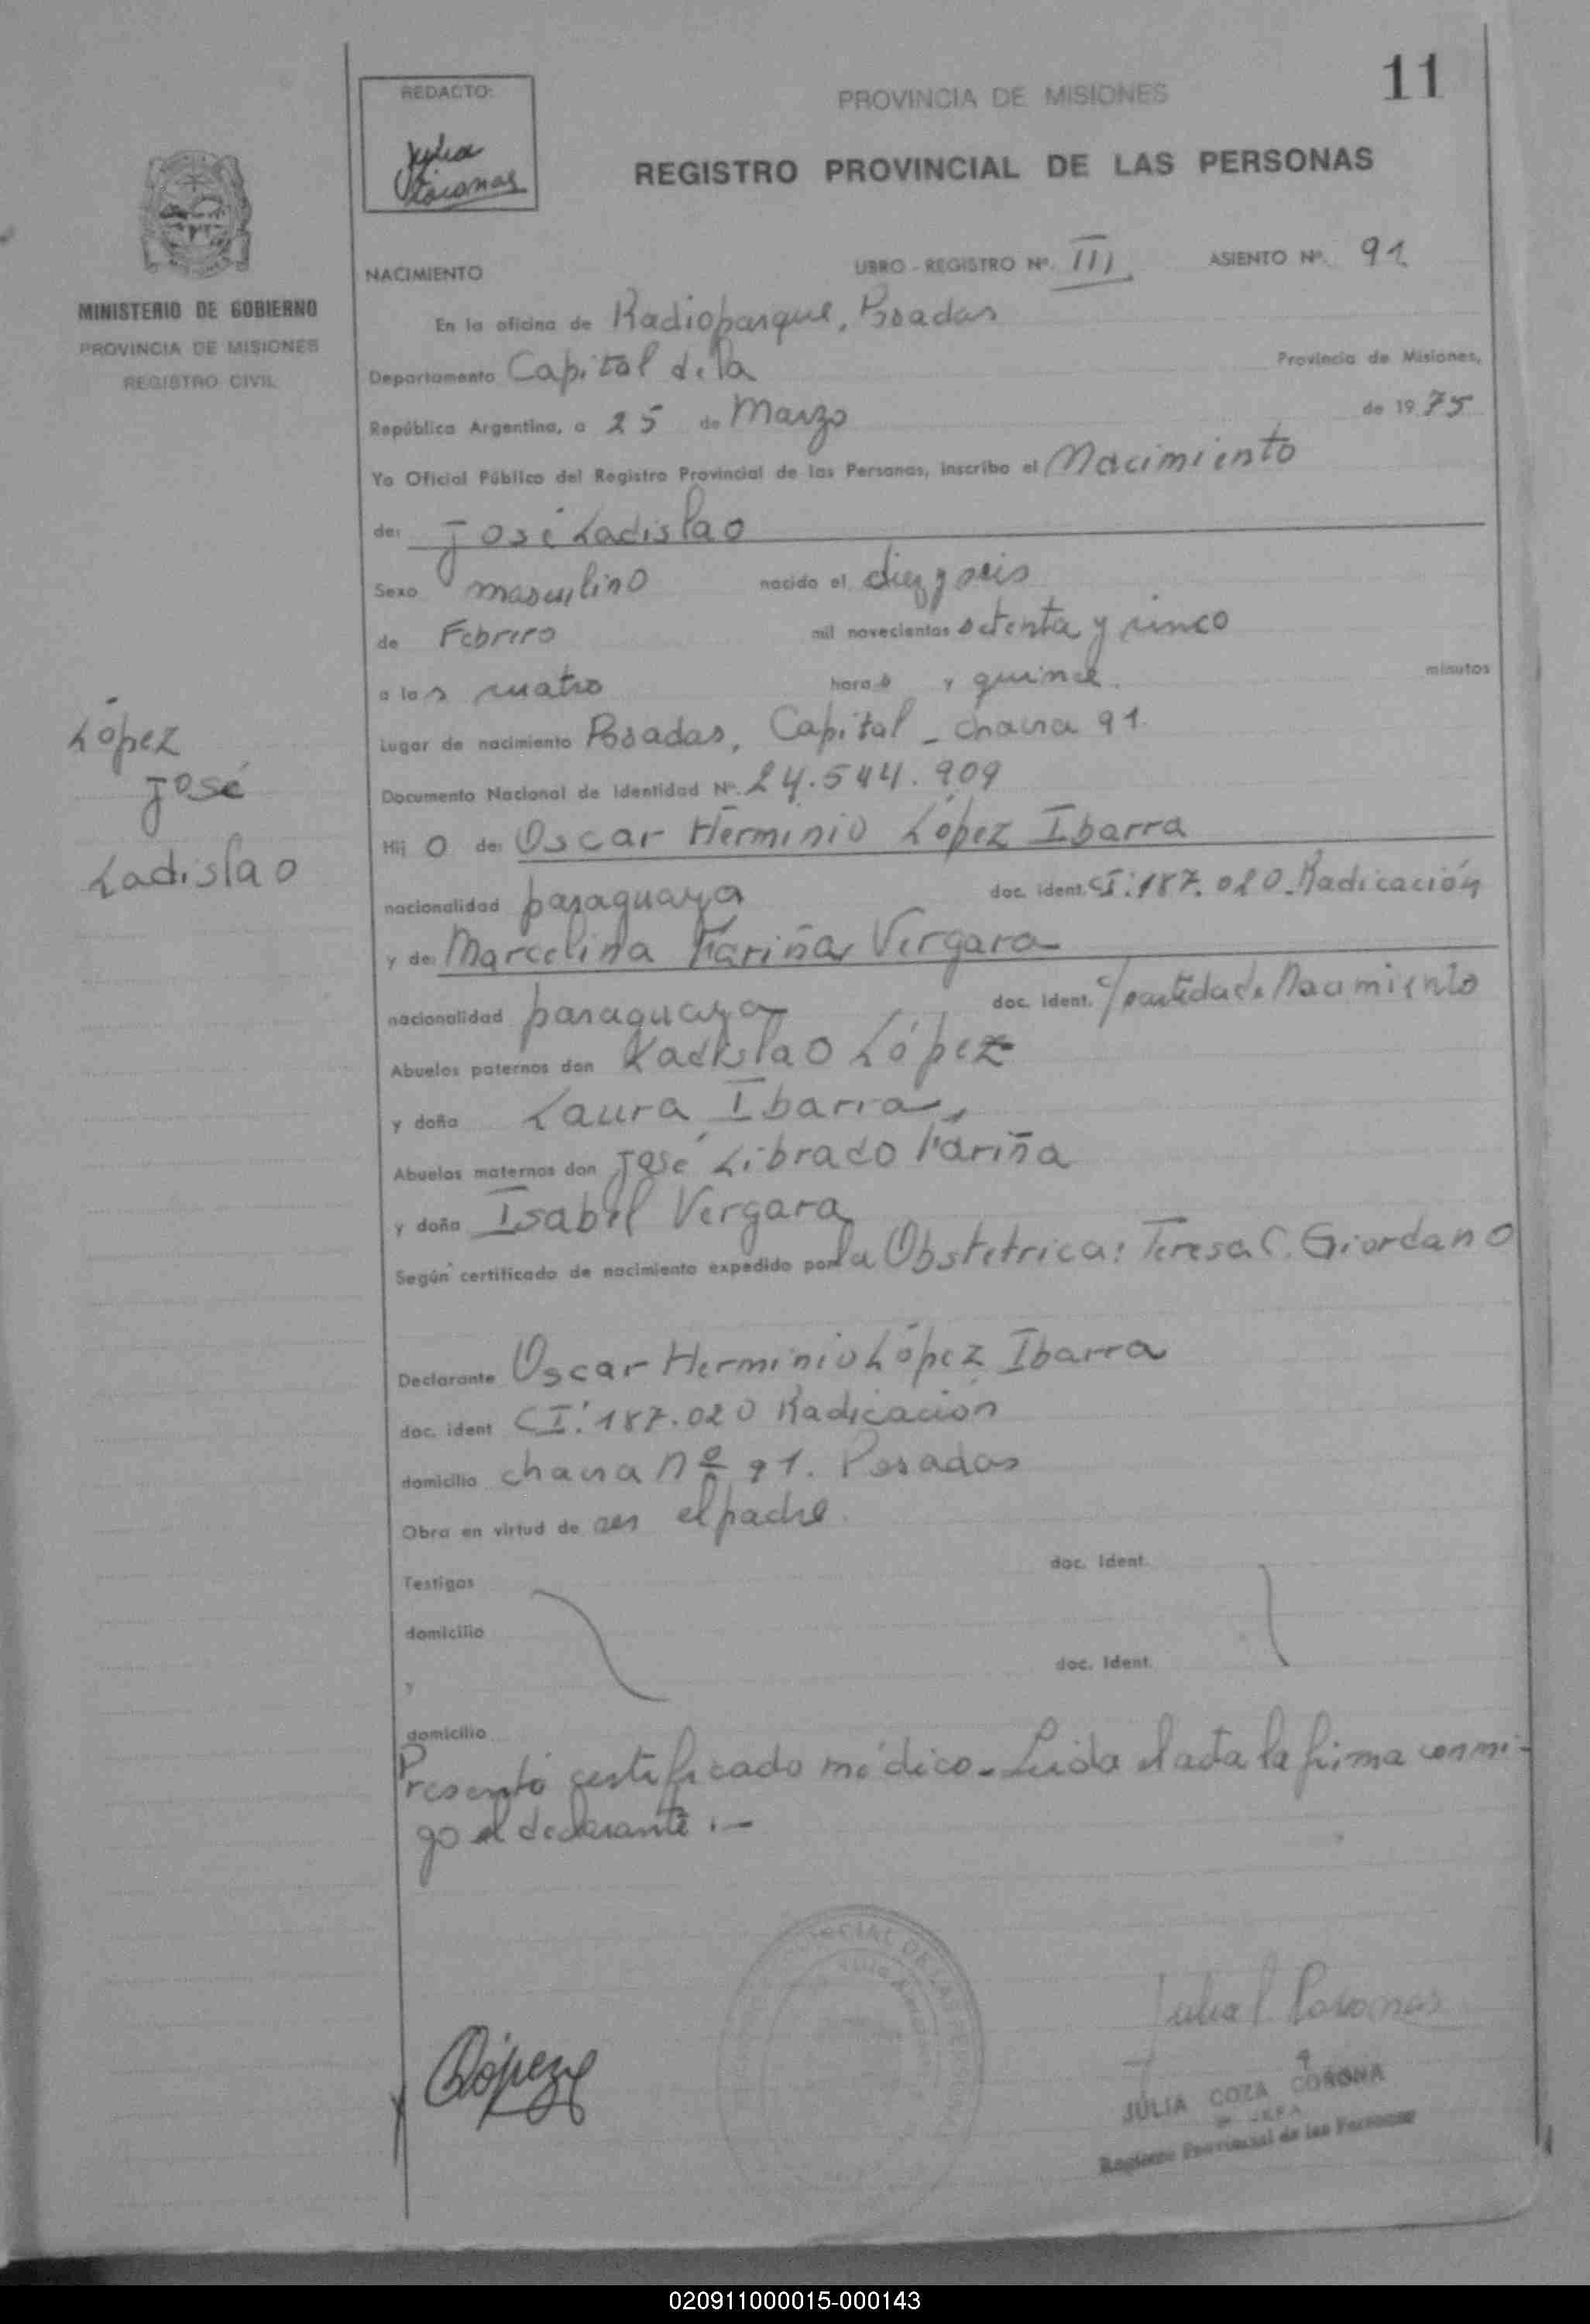 11
REDACTO:
PROVINCIA DE MISIONES
REGISTRO PROVINCIAL DE LAS PERSONAS
MINISTERIO DE GOBIERNO
PROVINCIA DE MISIONES
REGISTRO CIVIL
NACIMIENTO LIBRO - REGISTRO Nº. III ASIENTO Nº. 91
En la oficina de Radioparque, Posadas
Departamento Capital de la Provincia de Misiones,
República Argentina, a 25 de Marzo de 1975
Yo Oficial Público del Registro Provincial de las Personas, inscribo el Nacimiento
de: José Ladislao
Sexo masculino nacido el diez y seis
de Febrero mil novecientos setenta y cinco
a las cuatro horas y quince minutos
Lugar de nacimiento Posadas, Capital - chacra 91
Documento Nacional de Identidad Nº. 24.544.909
Hijo de: Oscar Herminio López Ibarra
nacionalidad paraguaya doc. ident. CI: 187.020 - Radicación
y de: Marcelina Fariña Vergara
nacionalidad paraguaya doc. ident. c/partida de Nacimiento
Abuelos paternos don Ladislao López
y doña Laura Ibarra,
Abuelos maternos don José Librado Fariña
y doña Isabel Vergara
Según certificado de nacimiento expedido por la Obstetrica: Teresa C. Giordano
Declarante Oscar Herminio López Ibarra
doc. ident CI: 187.020 Radicación
domicilio chacra nº 91. Posadas
Obra en virtud de ser el padre.
Testigos doc. ident.
domicilio
y doc. ident.
domicilio
Presentó certificado médico - Leida el acta la firma conmi-
go el declarante . -
López
José
Ladislao
López
JULIA COZA CORONA
JEFA
Registro Provincial de las Personas
020911000015-000143